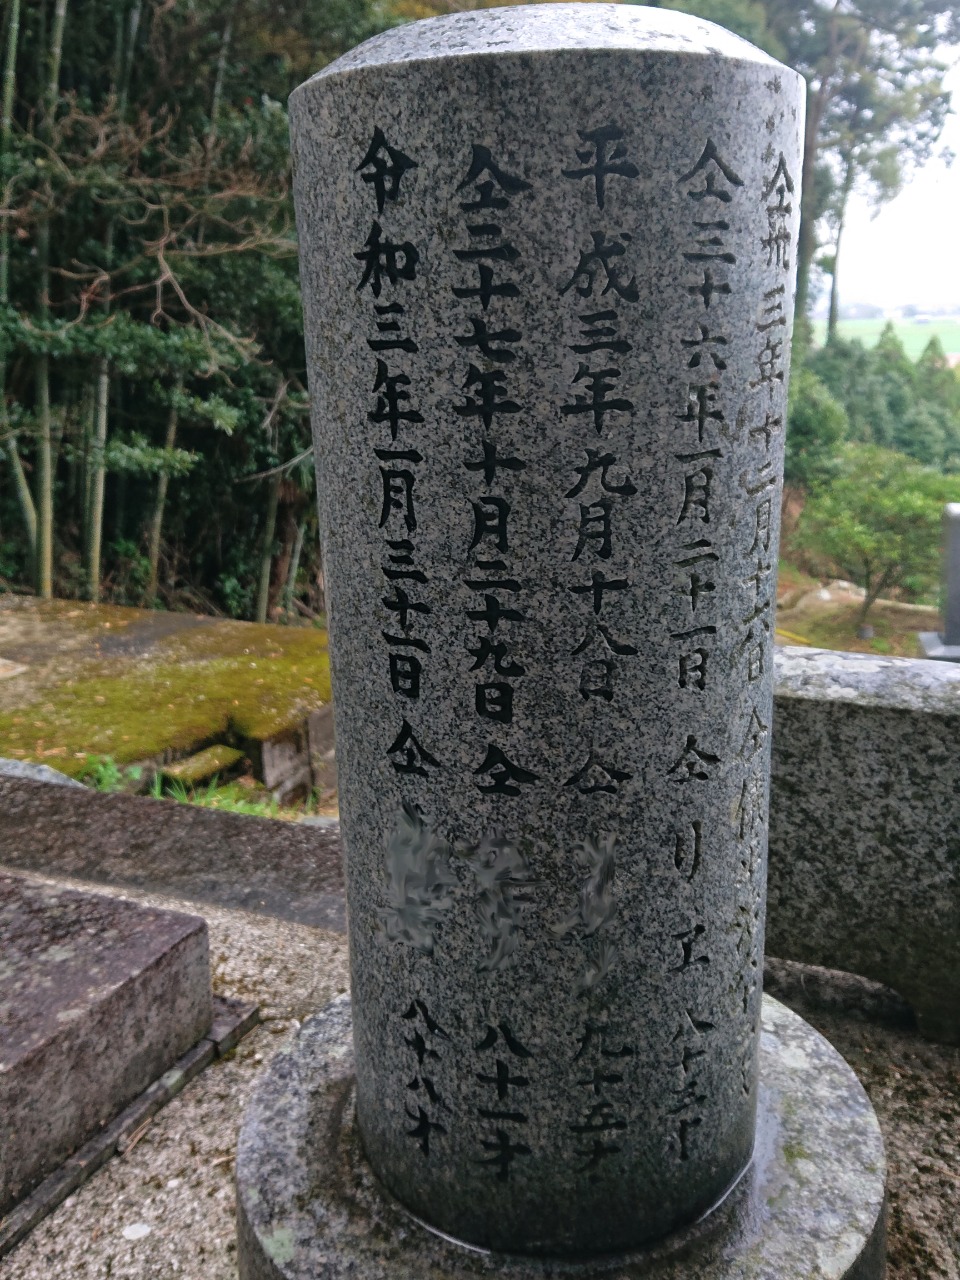 仝卅三年十二月十六日仝
仝三十六年一月二十一日仝リヱ八十三才
平成三年九月十八日仝 九十五才
仝二十七年十月二十九日仝 八十一才
令和三年一月三十一日仝 八十八才